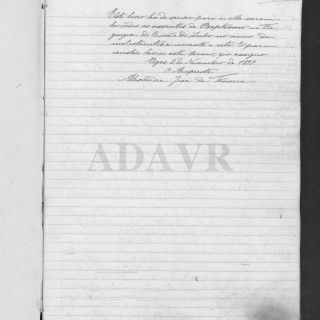 Este livro ha de servir para n'elle serem
lavrados os assentos de Baptismo na Fre
guezia de do no anno de
mil oitocentos e noventa e oito. E para
constar lavrei este termo que assigno.
2 de Novembro de 1897
O
Alexandre José da
ADAVR